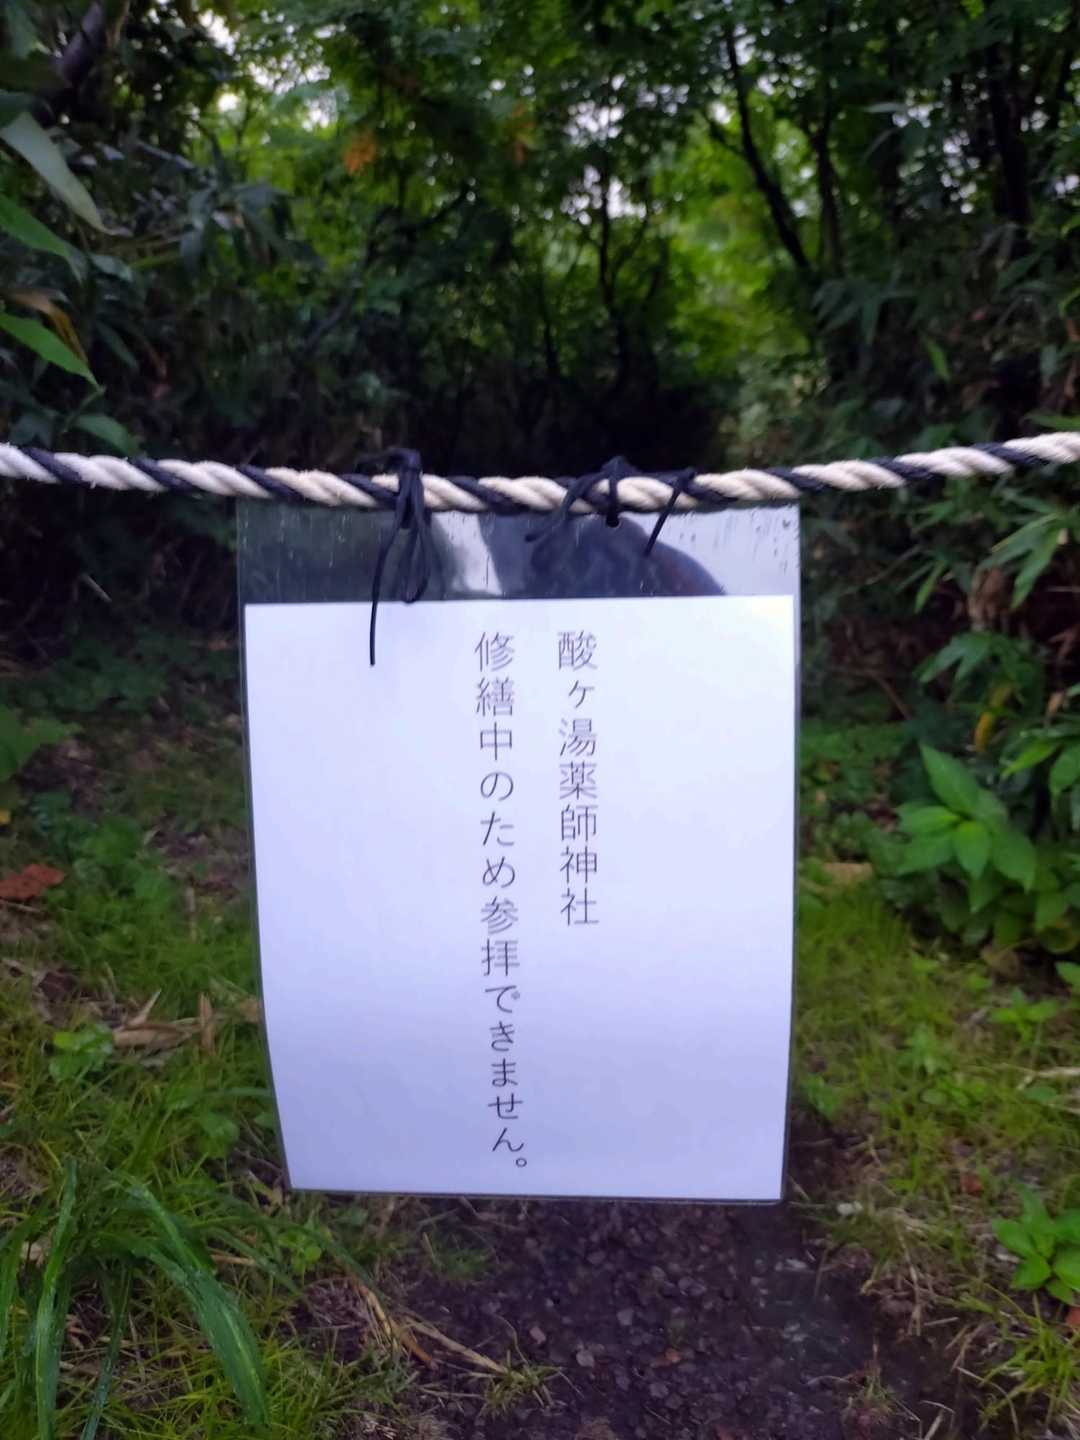 酸ヶ湯薬師神社
修繕中のため参拝できません。